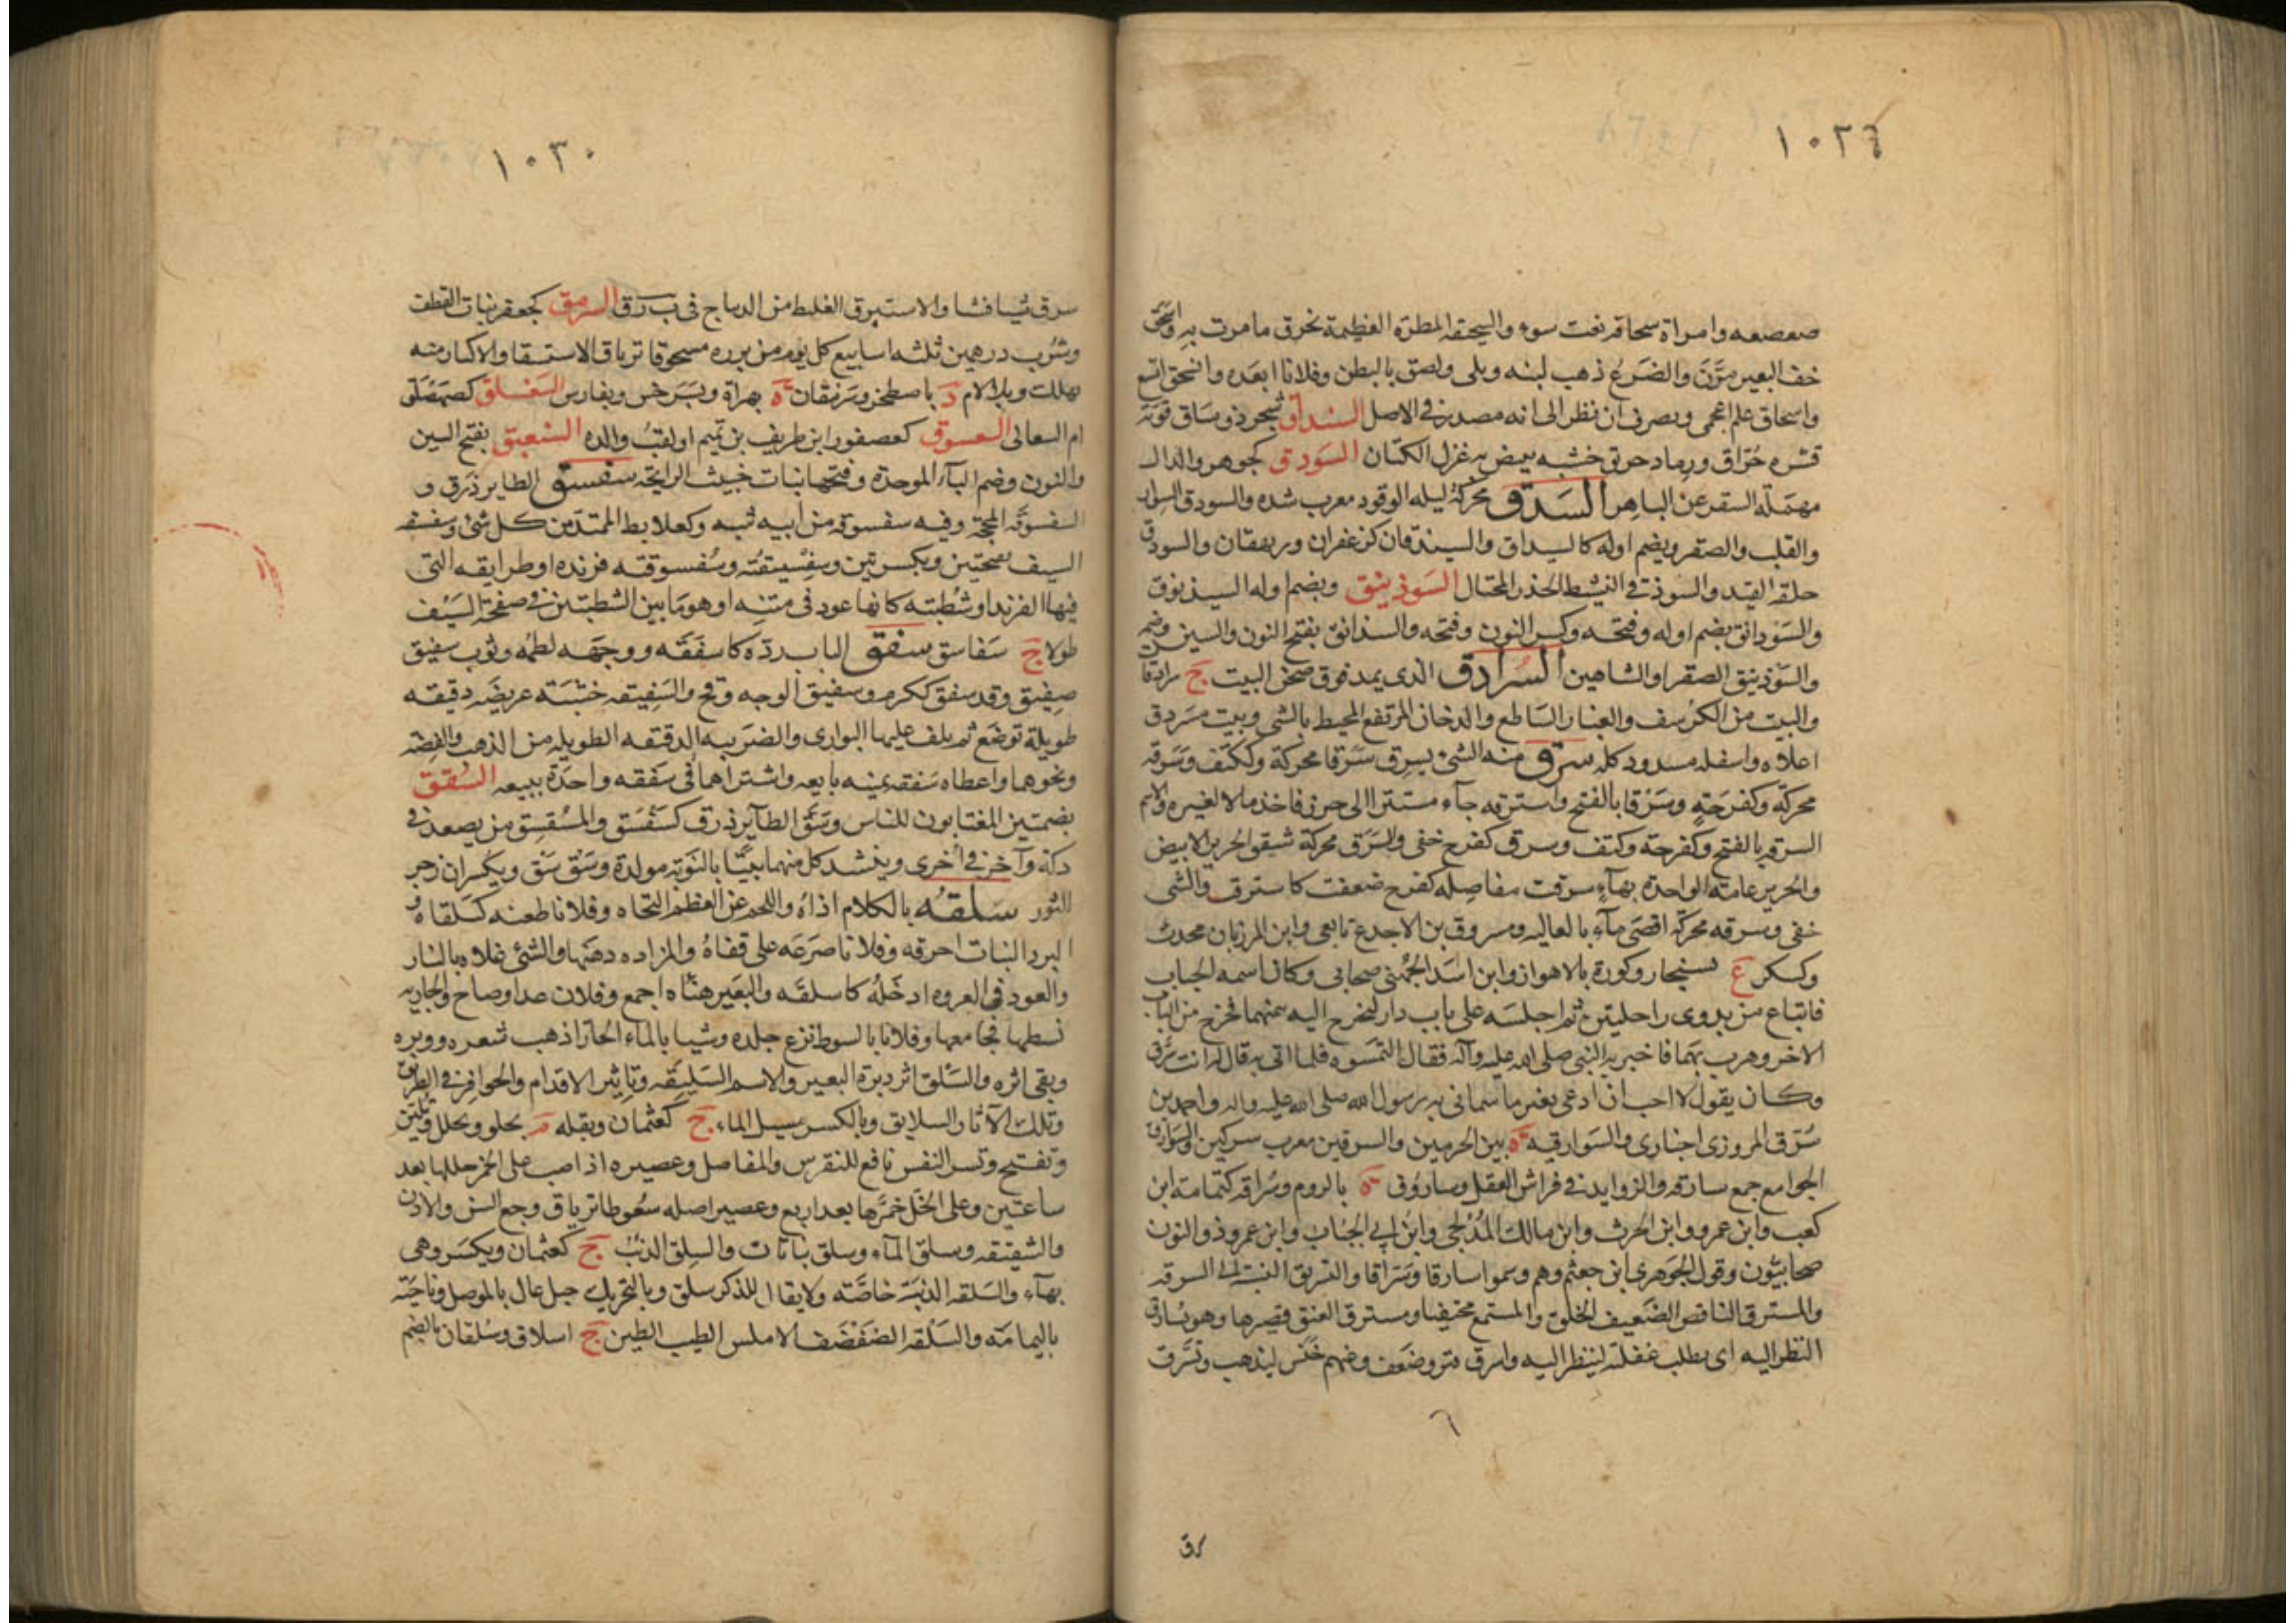 ١٠٢٤
صعصعه وامراة سحاقة نعت سوء والسيحقه المطرة العظيمة تخرق ما مرت به واسحق
خف البعير مرَّنَ والضَرعُ ذهب لبنه وبلى ولصق بالبطن وفلانا ابعَده وانسحق اتسع
واسحاق علم اعجمى ويصرف ان نظر الى انه مصدر فى الاصل السنداق شجر ذو ساق قوية
قشره حُرّاق ورماد حريق خشبه يبيض به غزل الكتان السَودق كجوهر والدال
مهمَلة السقر عن الباهر السَدق محركة ليله الوقود معرب شده والسودق السوار
والقلب والصقر ويضم اوله كالسيداق والسيندقان كزعفران وريهقان والسودق
حلقة القيد والسوذقى النشيط الحذر المحتال السَوذينق وبضم اوله السيذنوق
والسَوْدانق بضم اوله وفتحه وكسر النون وفتحه والسذانق بفتح النون والسين وضم
والسَوْذينق الصقر او الشاهين السُرادق الذى يمد فوق صحن البيت ج سرادقات
والبيت من الكرسف والغبار السَاطع والدخان المرتفع المحيط بالشى وبيت مسَردق
اعلاه واسفله مسدود كله سرق منه الشئ يسرق سَرَقا محركة وككتف وسَرَقه
محركة وكفرَحَةٍ وسَرْقا بالفتح واسترقه جاء مستترا الى حرز فاخذ مالا لغيره والاسم
السرقه بالفتح وكفرحة وكتف وسرق كفرح خفى والسَرَق محركة شقق الحرير الابيض
والحرير عامته الواحدة بهاء سرقت مفاصله كفرح ضعفت كاسترقت والشى
خفى وسرقه محركة اقصَى ماء بالعاليه ومسروق بن الاجدع تابعى وابن المرزبان محدث
وكسكر ع بسنجار وكورة بالاهواز وابن اسَد الجُهنى صحابى وكان اسمه الحباب
فابتاع من بدوى راحلتين ثم اجلسَه على باب دار ليخرج اليه بثمنهما فخرج من الباب
الاخر وهرب بهما فاخبر به النبى صلى الله عليه وآله فقال التمسوه فلما اتى به قال له انت سُرّق
وكان يقول لا احب ان ادعى بغير ما سمانى به رسول الله صلى الله عليه واله واحمد بن
سُرّق المروزى اخبارى والسَوارقيه ة بين الحرمين والسرقين معرب سركين والسَوارق
الجوامع جمع سارقة والزوايد فى فراش القفل وساروق ة بالروم وسُراقه كثمامة ابن
كعب وابن عمرو وابن الحرث وابن مالك المُدْلجى وابن ابى الحُباب وابن عمرو ذو النون
صحابيُّون وقول الجَوهرى ابن جعثم وهم وسموا سارقا وسَرّاقا والتسريق النسبة الى السرقه
والمسترق الناقص الضَعيف الخلق والمستمع مختفيا ومسترق العنق قصيرها وهو يُسارق
النظر اليه اى يطلب غفلة لينظر اليه وانسرق فتر وضعف وعنهم خنَس ليذهب وتسَرّق
٦
رق
١٠٣٠
سرق شيا فشا والاستبرق الغليظ من الديباج فى ب ر ق السرمق كجعفر نبات القطف
وشُرب درهمين ثلثه اسابيع كل يوم من بزره مسحوقا ترياق الاستسقا والاكثار منه
مهلك وبلا لام د باصطخر وسَرمقان ة بهراة وبسَرخس وبفارس السَعْسلق كصهصَلق
ام السعالى السعسوق كعصفور ابن طريف بن تميم او لقبُ والده السَنعبق بفتح السين
والنون وضم الباء الموحدة وفتحها نبات خبيث الرايحة سفسق الطاير ذرق و
السفسوقة المحجة وفيه سفسوقة من ابيه شبه وكعلابط الممتد من كل شئ وسفسقه
السيف بفتحتين وبكسرتين وسِفْسيقتُه وسُفسوقته فرنده او طرايقه التى
فيها الفرند او شُطبته كانها عود فى متنِه او هو مَا بين الشطبتين فى صفحة السَيف
طولا ج سَفاسق سفق الباب ردّه كاسفَقَه ووجهَه لطمُه وثوب سفيق
صفيق وقد سفق ككرم وسفيق الوجه وقح والسَفيقه خشَبَة عريضَه دقيقه
طويلة توضَع ثم يلف عليها البوارى والضَريبه الدقيقه الطويله من الذهب والفضه
ونحوهما واعطاه سَفقه يمينه بايعه واشتراهما فى سَفقه واحَدة ببيعه السُقق
بضمتين المغتابون للناس وسَقّ الطآير ذرق كسَقْسَق والمُسَقسِق من يصعد فى
دكة وآخر فى اخرى وينشد كل منهما بيتًا بالنَوبَة مولدة وسَقْ سَقْ ويكسران زجر
للثور سَلقُه بالكلام اذاهُ واللحم عن العظم التحاه وفلانا طعنه كسَلقاه و
البرد النبات احرقه وفلانا صَرَعَه على قفاهُ والمزاده دهَنها والشئ غلاه بالنار
والعود فى العروه ادخَلهُ كاسلقَه والبعَير هنَأه اجمع وفلان عدا وصاح والجاريه
بسطها فجامعها وفلانا بالسوط نزع جلده وشيا بالماء الحار اذهب شعره ووبره
وبقى اثره والسَلق اثر دبرة البعير والاسم السَليقَه وتاثير الاقدام والحوافر فى الطريق
وتلك الآثار السلايق وبالكسر مسيل الماء ج كعثمان وبقله م يجلو ويحلل ويلين
وتفتح وتسر النفس نافع للنقرس والمفاصل وعصيره اذا صب على الخمر خللها بعد
ساعتين وعلى الخل خمّرها بعد اربع وعصير اصله سعُوطا ترياق وجع السن والاذن
والشقيقه وسلق الماء وسلق نباتات والسِلق الذئب ج كعثمان ويكسَر وهى
بهآء والسَلقه الذئبَة خاصَّة ولا يقال للذكر سلق وبالتحريك جبل عال بالموصل وناحَية
باليمامَه والسَلْقه الصَفْصَف الاملس الطيب الطين ج اسلاق وسُلقان بالضم